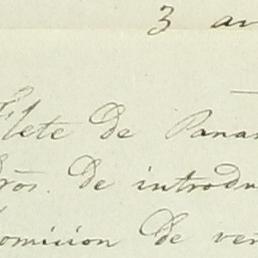 3 ar
Flete de Pana
ros. de introdu
omicion de ven